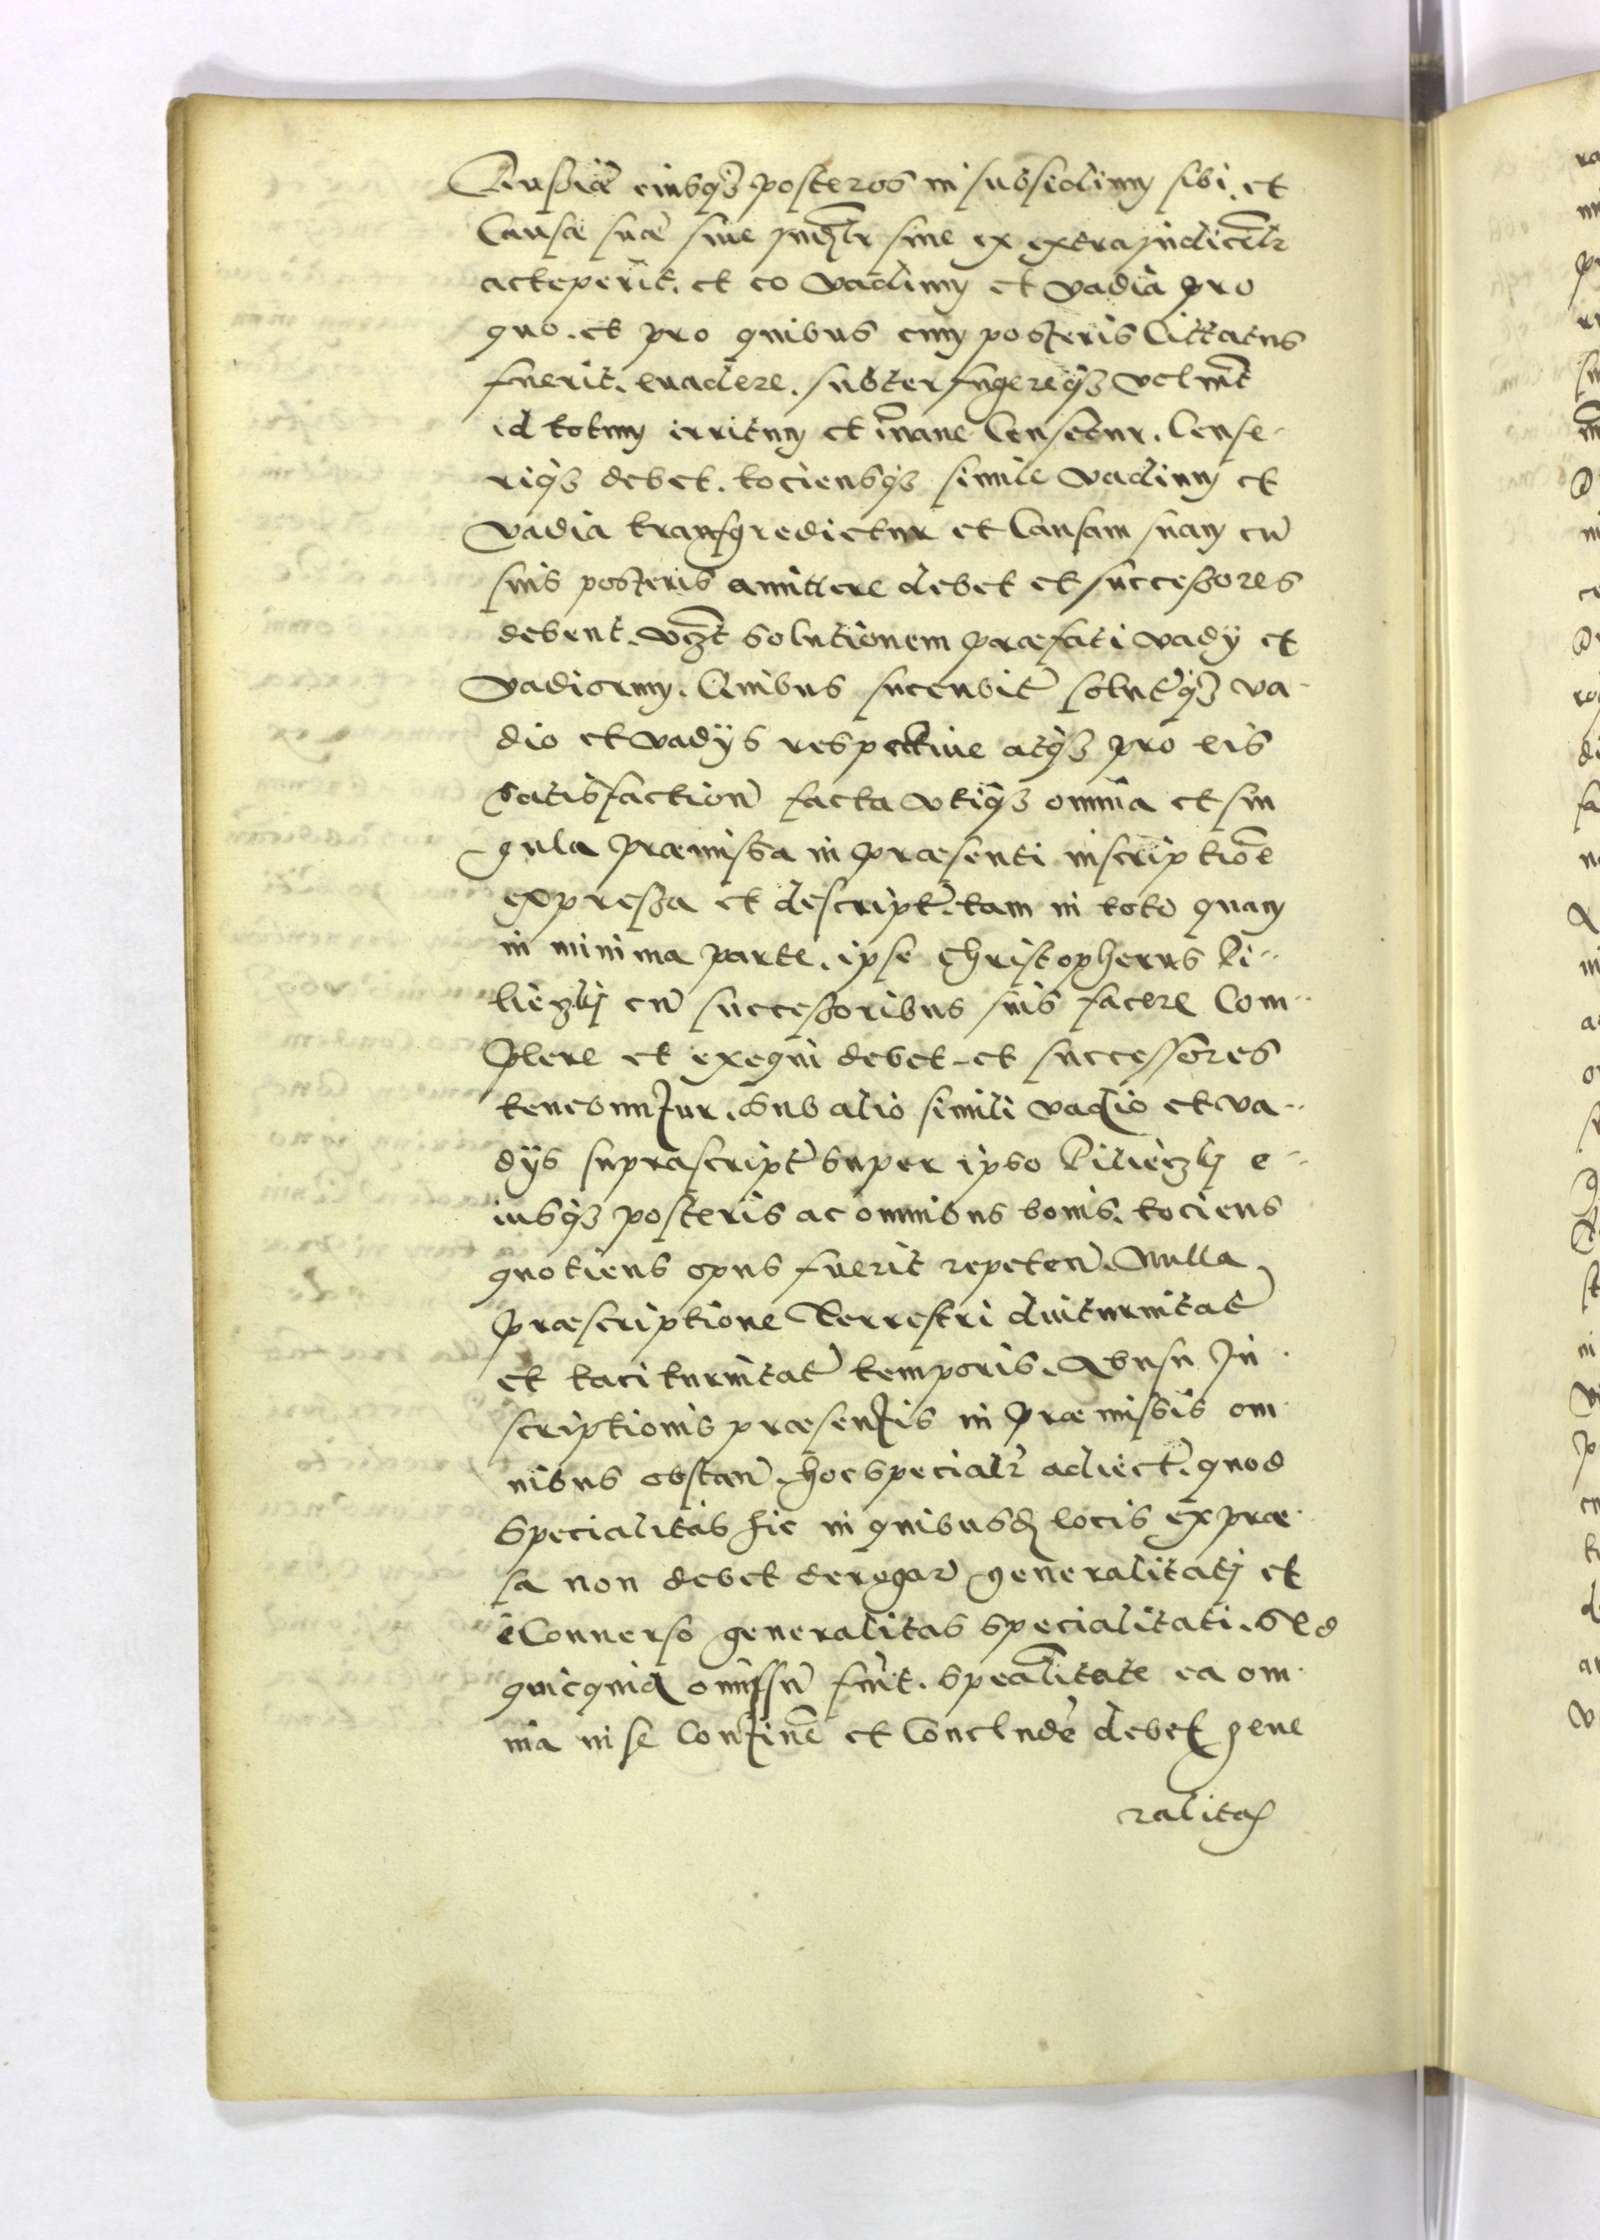 eiusq3 posteros in subsidium sibi et
Causæ suæ siue siue ex extraiudicialr
acceperit. et eo vadium et vadia pro
quo. et pro quibus cum posteris Cittatus
fuerit. euadere. subterfugereq3
id totum irritum et inane Censetur. Cense-
riq3 debet. tociensq3 simile vadium et
vadia transgredietur et Causam suam cu
suis posteris amittere debet et successores
debent. solutionem præfati vadij et
vadiorum. Quibus sucenbit solutq3 va-
dio et vadijs respective atq3 pro eis
Satisfaction facta vtiq3 omnia et sin
gula præmissa in præsenti inscriptione
expressa et descript. tam in toto quam
in minima parte. ipse Christopherus
cu successoribus suis facere Com-
plere et exequi debet et successores
tenebuntur. Sub alio simili vadio et va-
dijs suprascript super ipso e-
iusq3 posteris ac omnibus bonis. tociens
quotiens opus fuerit repeten. Nulla
præscriptione Terrestri diuturnitat
et taciturnitat temporis. Abusu In
scriptionis præsentis in præmissis om
nibus obstan. hoc specialr adiect. quod
Specialitas hic in quibusd locis expræ
sa non debet derogar generalitati et
eConuerso generalitas specialitati. Sed
quicquid omissu fuit. specialitate ea om
nia in se Continē et Conclude debet gene
ralitas